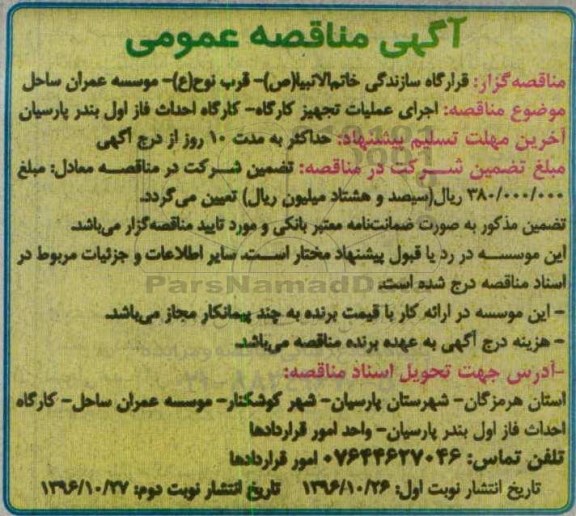 آگهی مناقصه عمومی
مناقصه‌گزار: قرارگاه سازندگی خاتم‌الانبیا(ص)- قرب نوح(ع)- موسسه عمران ساحل
موضوع مناقصه: اجرای عملیات تجهیز کارگاه- کارگاه احداث فاز اول بندر پارسیان
آخرین مهلت تسلیم پیشنهاد: حداکثر به مدت ۱۰ روز از درج آگهی
مبلغ تضمین شرکت در مناقصه: تضمین شرکت در مناقصه معادل: مبلغ
۳۸۰/۰۰۰/۰۰۰ ریال(سیصد و هشتاد میلیون ریال) تعیین می‌گردد.
تضمین مذکور به صورت ضمانت‌نامه معتبر بانکی و مورد تایید مناقصه‌گزار می‌باشد.
این موسسه در رد یا قبول پیشنهاد مختار است. سایر اطلاعات و جزئیات مربوط در
اسناد مناقصه درج شده است.
ParsNamadData
- این موسسه در ارائه کار با قیمت برنده به چند پیمانکار مجاز می‌باشد.
- هزینه درج آگهی به عهده برنده مناقصه می‌باشد.
-آدرس جهت تحویل اسناد مناقصه:
استان هرمزگان- شهرستان پارسیان- شهر کوشکنار- موسسه عمران ساحل- کارگاه
احداث فاز اول بندر پارسیان- واحد امور قراردادها
تلفن تماس: ۰۷۶۴۴۶۲۷۰۴۶ امور قراردادها
تاریخ انتشار نوبت اول: ۱۳۹۶/۱۰/۲۶ تاریخ انتشار نوبت دوم: ۱۳۹۶/۱۰/۲۷